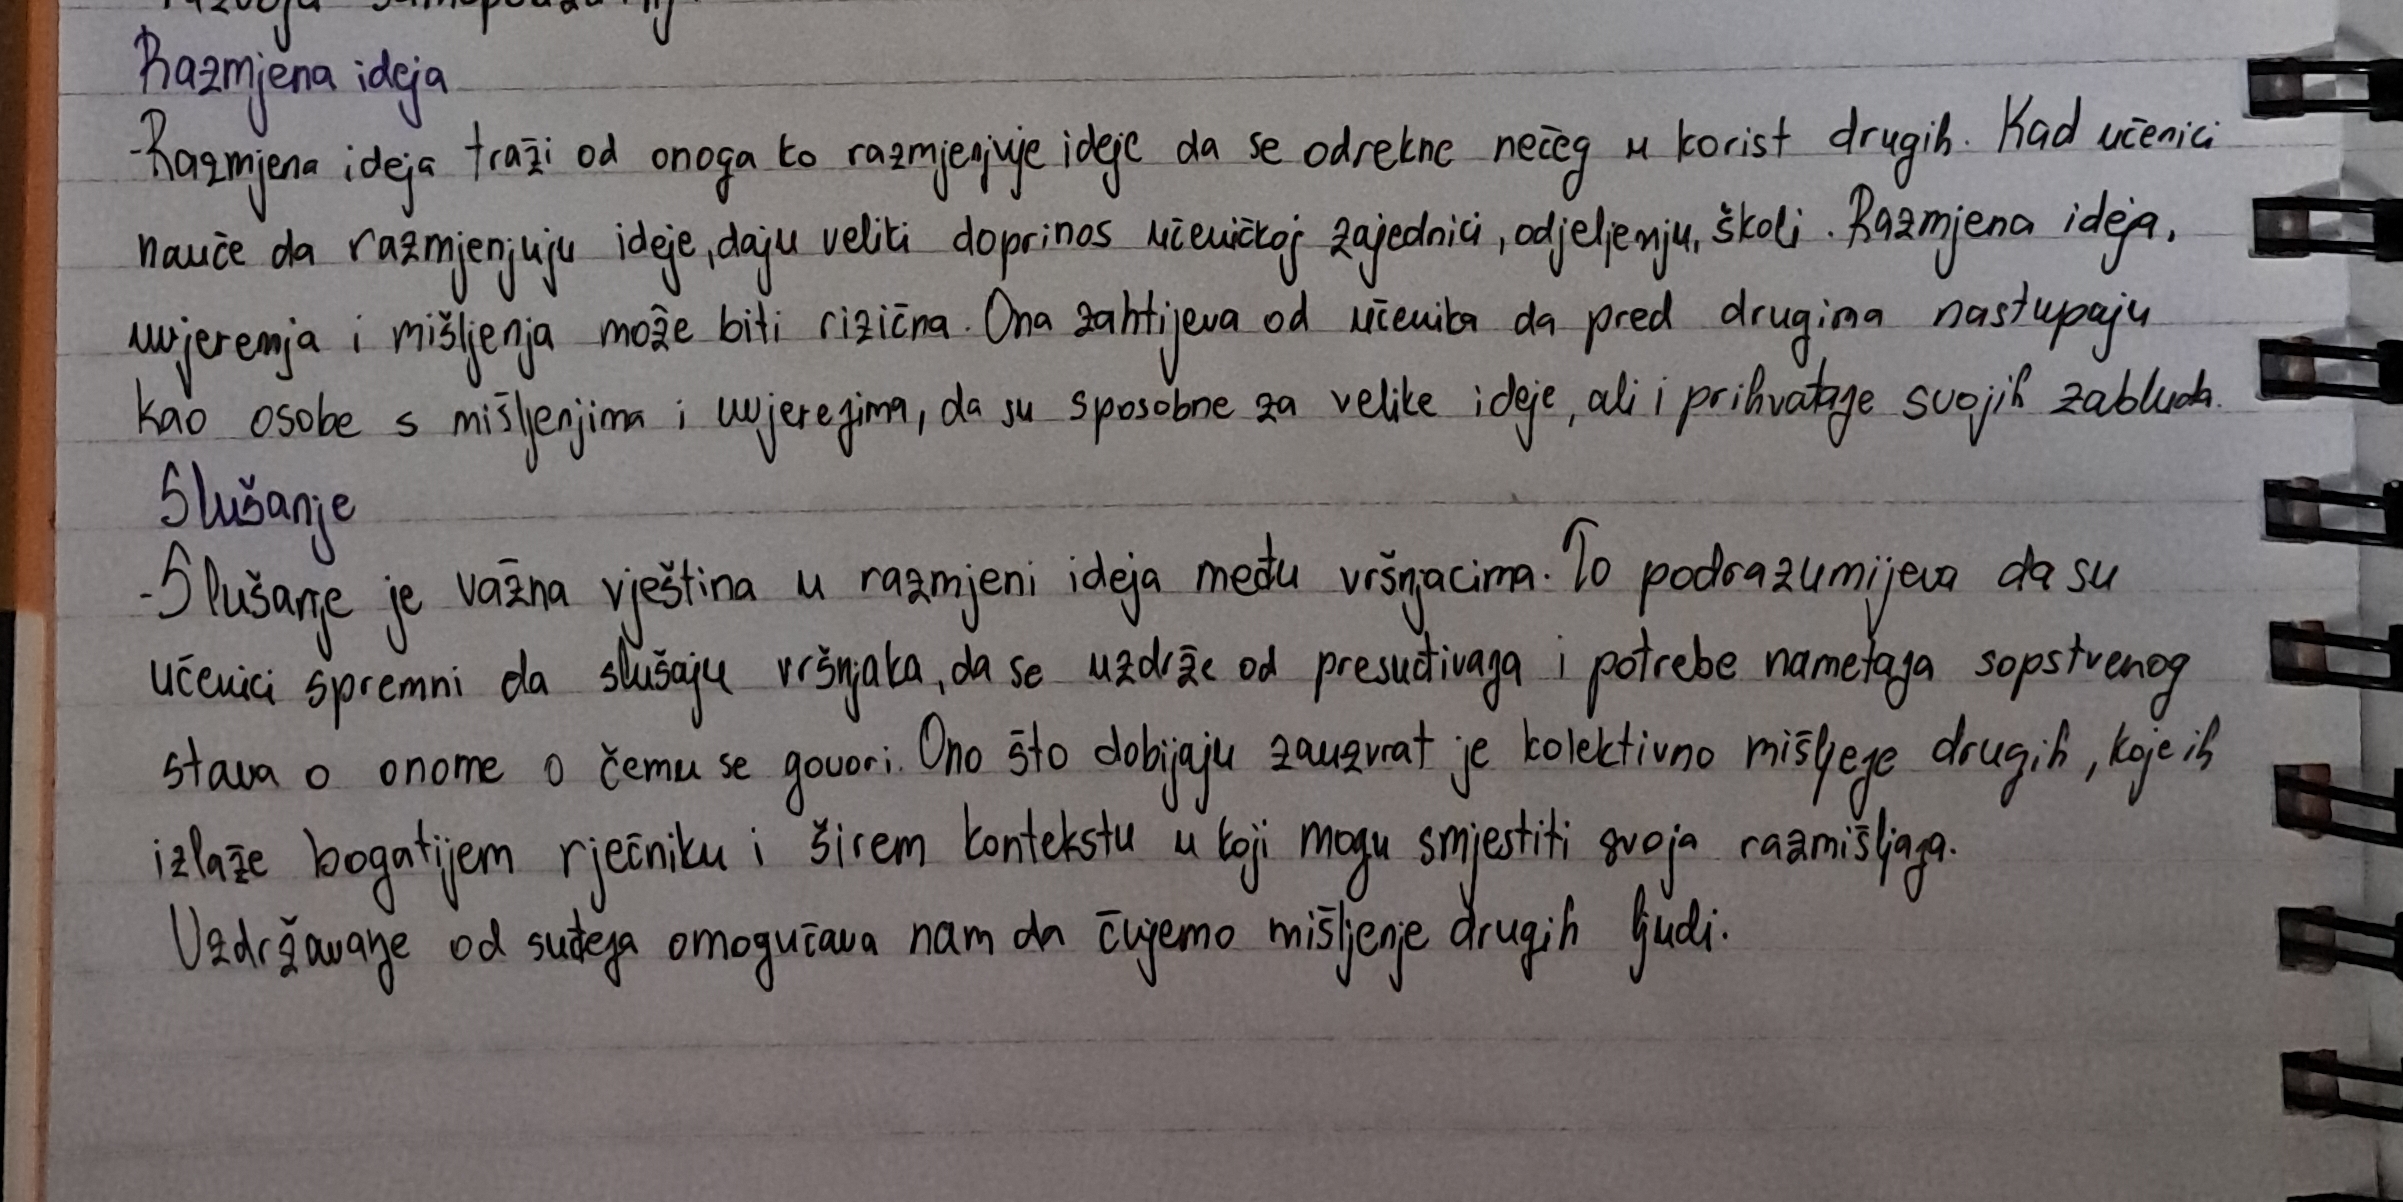 Razmjena ideja
-Razmjena ideja traži od onoga ko razmjenjuje ideje da se odrekne nečeg u korist drugih. Kad učenici
nauče da razmjenjuju ideje, daju veliki doprinos učeničkoj zajednici, odjeljenju, školi. Razmjena ideja,
uvjerenja i mišljenja može biti rizična. Ona zahtijeva od učenika da pred drugima nastupaju
kao osobe s mišljenjima i uvjerenjima, da su sposobne za velike ideje, ali i prihvatanje svojih zabluda.
Slušanje
-Slušanje je važna vještina u razmjeni ideja među vršnjacima. To podrazumijeva da su
učenici spremni da slušaju vršnjaka, da se uzdrže od presuđivanja i potrebe nametanja sopstvenog
stava o onome o čemu se govori. Ono što dobijaju zauzvrat je kolektivno mišljenje drugih, koje ih
izlaže bogatijem rječniku i širem kontekstu u koji mogu smjestiti svoja razmišljanja.
Uzdržavanje od suđenja omogućava nam da čujemo mišljenje drugih ljudi.